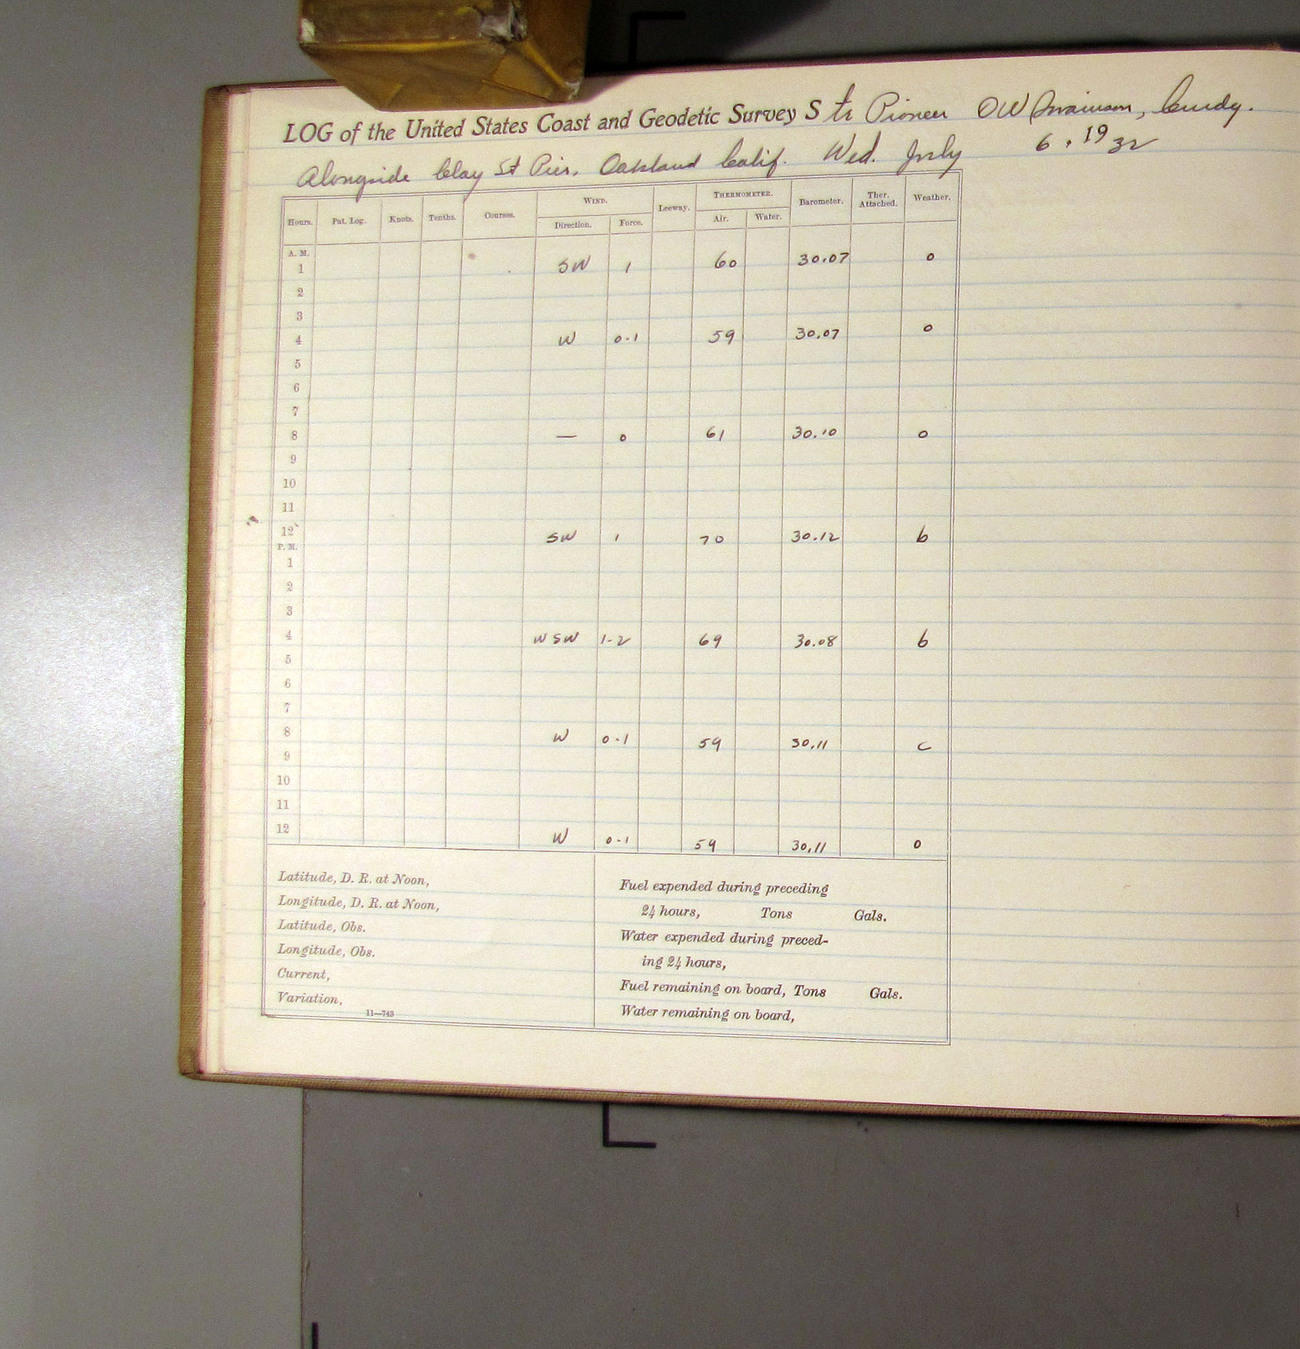 LOG of the United States Coast and Geodetic Survey Str Pioneer OW Swainson, Comdg.
Alongside Clay St Pier, Oakland Calif. Wed. July 6, 1932
Hours. Pat. Log. Knots. Tenths. Courses. WIND. Leeway. THERMOMETER. Barometer. Ther. Attached. Weather.
Direction. Force. Air. Water.
A. M.
1 SW 1 60 30.07 o
2
3
4 W 0-1 59 30.07 o
5
6
7
8 — 0 61 30.10 o
9
10
11
12 SW 1 70 30.12 b
P. M.
1
2
3
4 WSW 1-2 69 30.08 b
5
6
7
8 W 0-1 59 30.11 c
9
10
11
12 W 0-1 59 30.11 o
Latitude, D. R. at Noon,
Longitude, D. R. at Noon,
Latitude, Obs.
Longitude, Obs.
Current,
Variation,
11—743
Fuel expended during preceding
24 hours, Tons Gals.
Water expended during preced-
ing 24 hours,
Fuel remaining on board, Tons Gals.
Water remaining on board,